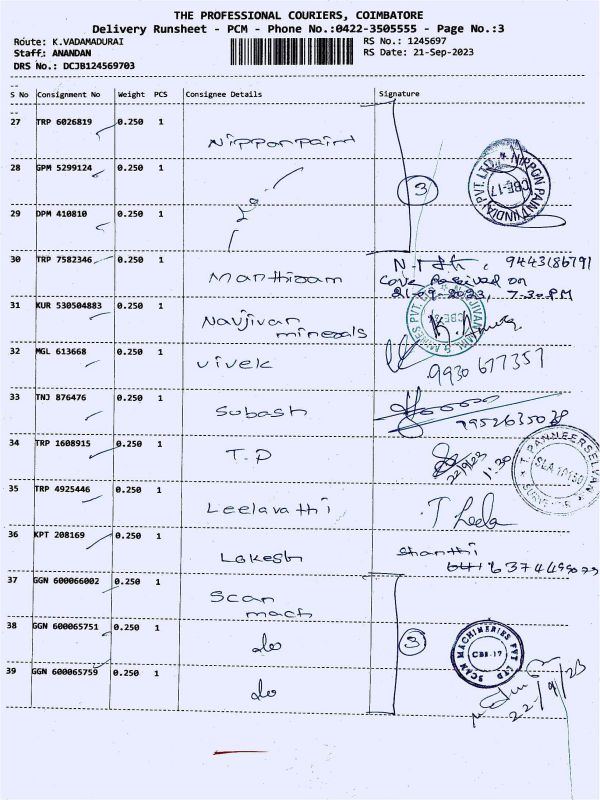 THE PROFESSIONAL COURIERS, COIMBATORE
Delivery Runsheet - PCM - Phone No.:0422-3505555 - Page No.:3
Route: K.VADAMADURAI RS No.: 1245697
Staff: ANANDAN RS Date: 21-Sep-2023
DRS No.: DCJB124569703
S No Consignment No Weight PCS Consignee Details Signature
27 TRP 6026819 0.250 1
Nipponpaint
28 GPM 5299124 0.250 1
3
NIPPON PAINT (INDIA) PVT. LTD. CBE-17
29 DPM 410810 0.250 1
30 TRP 7582346 0.250 1 9443186791
Manthiram
Cover Received on
21-09-2023, 7.30PM
31 KUR 530504883 0.250 1
Navjivan
minerals
32 MGL 613668 0.250 1
vivek 9930677357
33 TNJ 876476 0.250 1
Subash
34 TRP 1608915 0.250 1
T.P 22/9/23 1:30
T. PANNEERSELVAN
35 TRP 4925446 0.250 1
Leelavathi T Leela
36 KPT 208169 0.250 1
Lokesh Shanthi
37 GGN 600066002 0.250 1
Scan
mach
38 GGN 600065751 0.250 1
do 3
SCAN MACHINERIES PVT LTD CBE-17
39 GGN 600065759 0.250 1
do 22/9/23